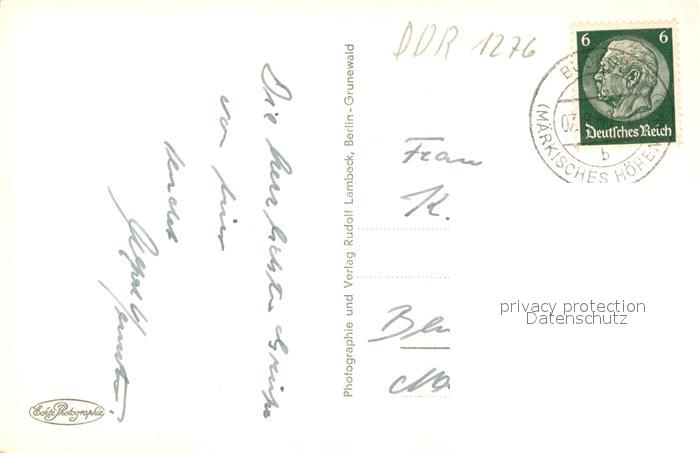 DDR 1276
6 6
Deutsches Reich
(MÄRKISCHES HÖHEN
07.
b
Die herzlichsten Grüße
von hier
sendet
Photographie und Verlag Rudolf Lambeck, Berlin-Grunewald
Frau
K.
privacy protection
Datenschutz
Echte Photographie